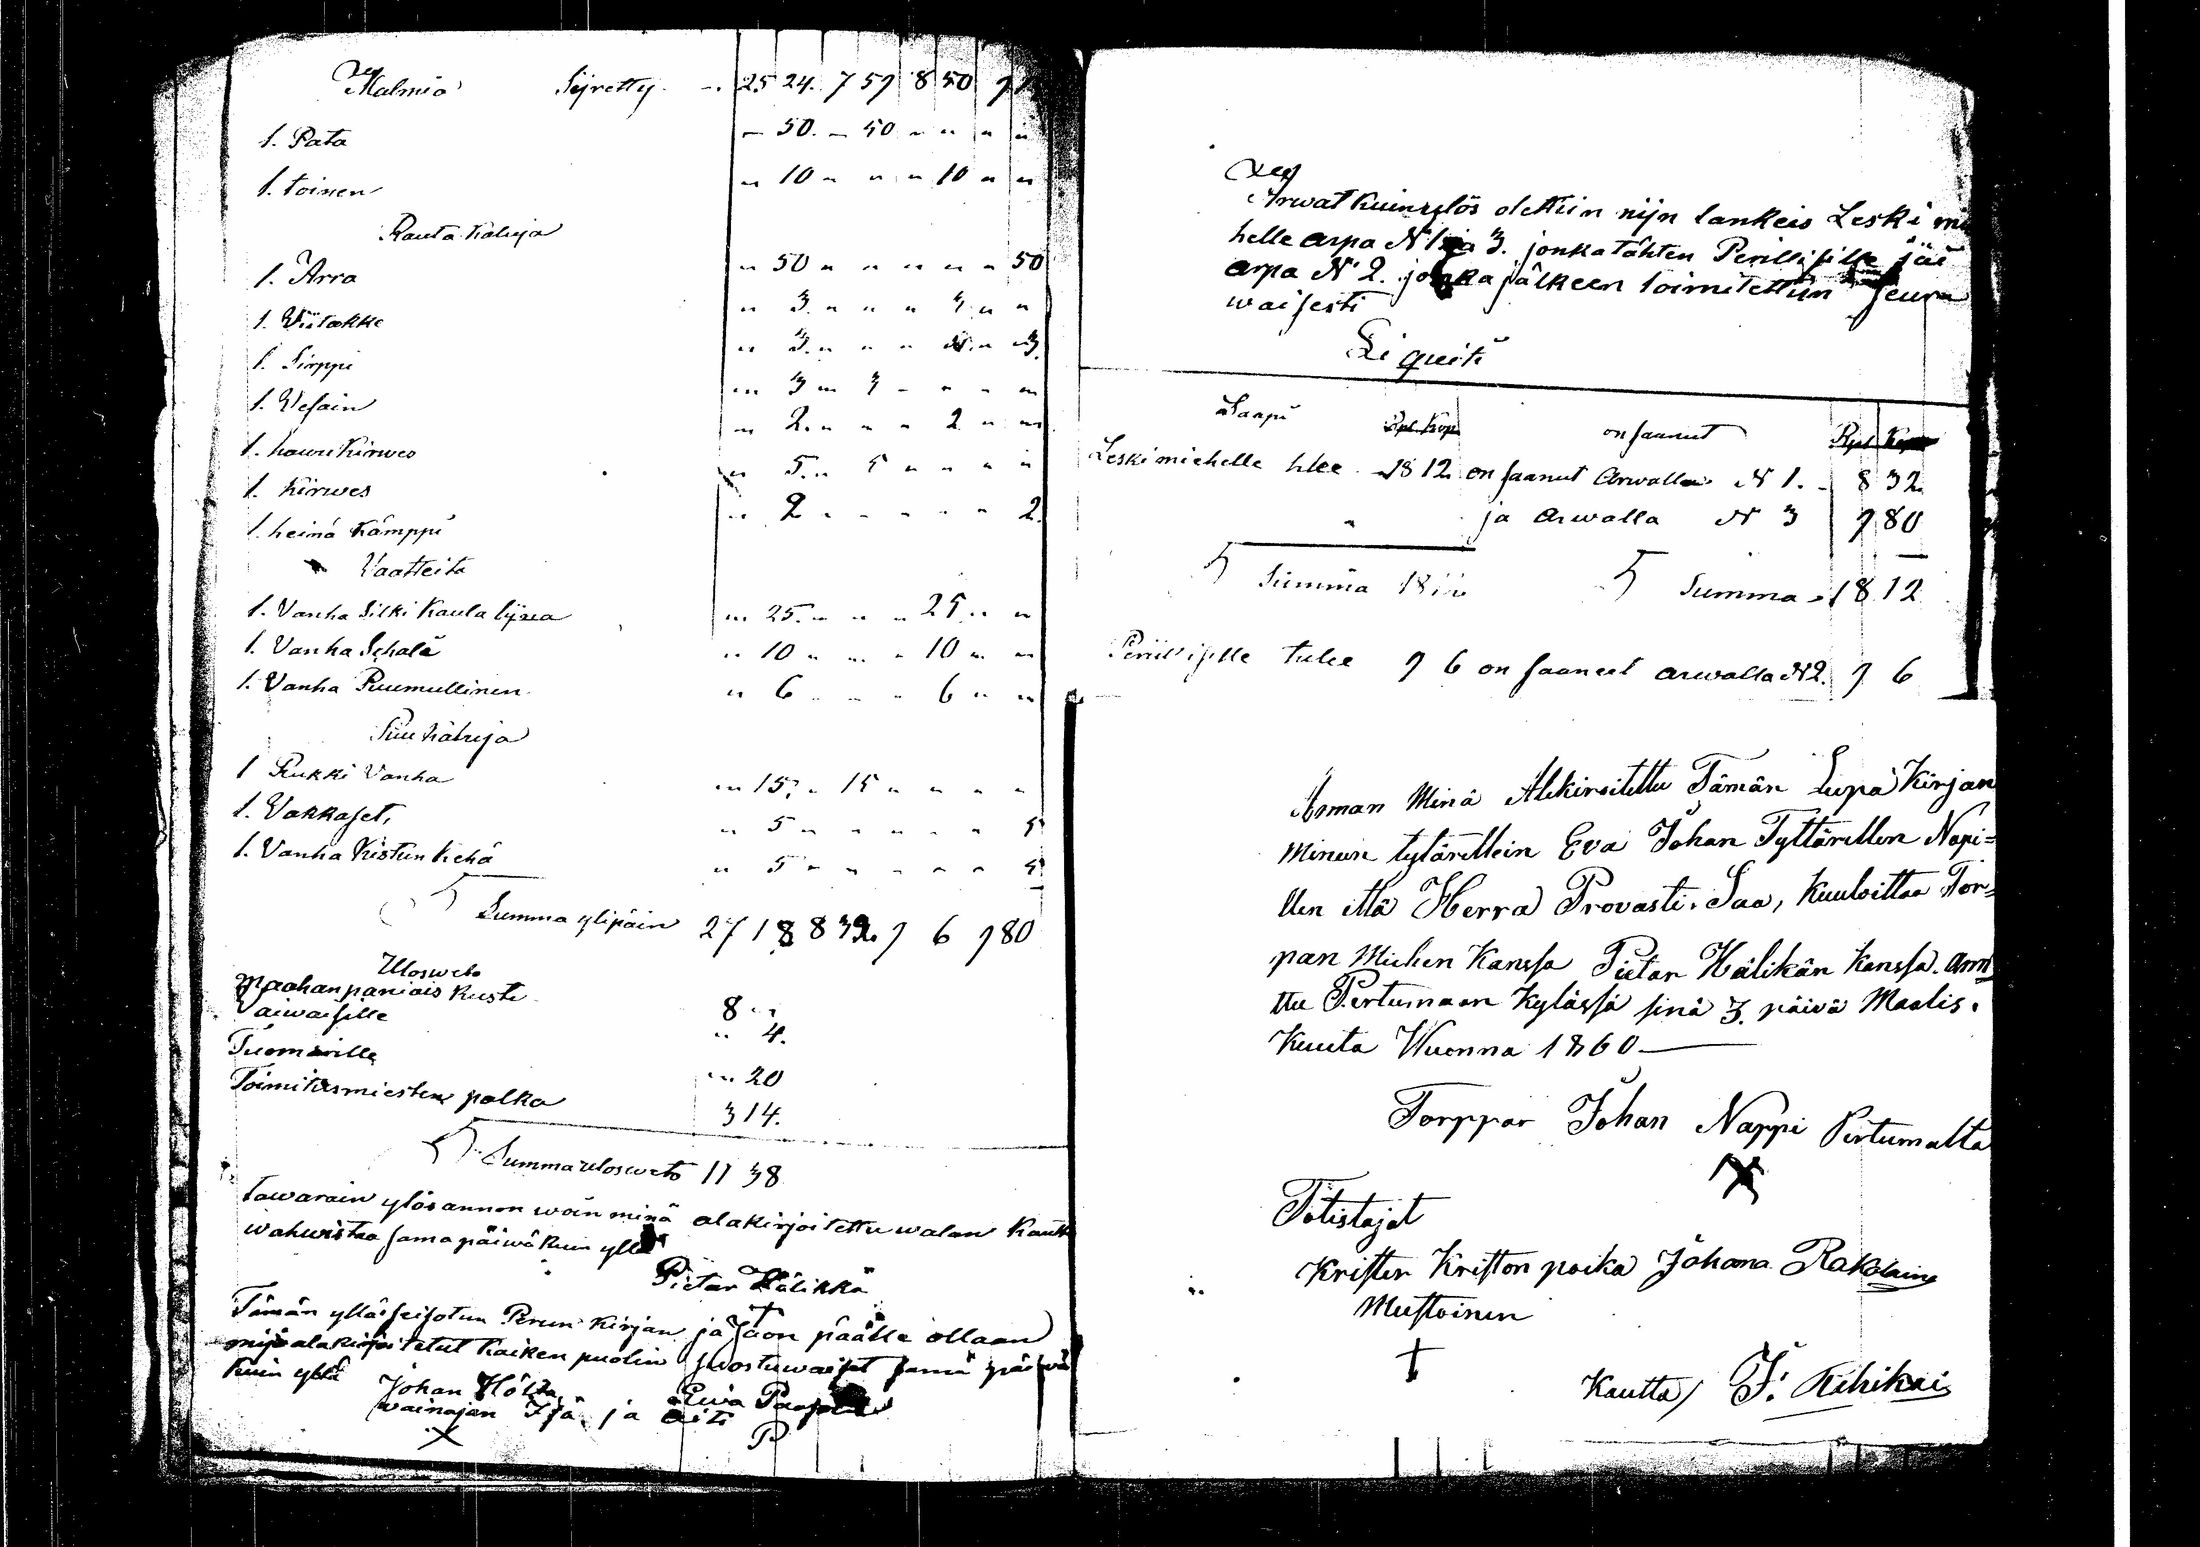 Malmia Sijretty 25 24. 7 59 8 50 9
1. Pata " 50. - 50 " " " "
1. toinen " 10 " " " 10 " "
Rauta kaluja
1. Arra " 50 " " " " " 50
1. Viitakke " 3. " " " 3 " "
1. Sirppi " 3. " " " " " 3.
1. Vesain " 3 " 3 " " " "
1. hawu kirwes " 2. " " " 2 " "
1. kirwes " 5. " 5 " " " "
1. heinä hämppi " 2 " " " " " 2.
Vaatteita
1. Vanha Silki kaula lijna " 25. " " " 25 " "
1. Vanha Schala " 10 " " " 10 " "
1. Vanha Puumullinen " 6 " " " 6 " "
Puu kaluja
1 Rukki Vanha " 15. " 15 " " " "
1. Vakkaset, " 5 " " " " " 5
1. Vanha kistun kehä " 5 " " " " " 5
Summa ylipäin 27 18 8 32. 9 6 9 80
Ulosweto
Maahan paniais kusti 8 "
Vaiwaisille " 4.
Tuomarille " 20
Toimitusmiesten palka 3 14.
Summa ulosweto 11 38
tawarain ylösannon woin minä alakirjoitettu walan kautta
wahwistaa sama päiwä kuin yllä
Pietar Hälikkä
Tämän ylläseisotun Perun kirjan ja Jaon päälle ollaan
mijä alakirjoitetut kaiken puolin suostuwaiset sama päiwä
kuin yllä
Johan Eiwa
wainajan Isä ja äiti
X P

Arwat kuin ylös otettiin nijn lankeis Leski mie
helle arpa N 1 ja 3. jonka tähten Perillisille jäi
arpa N 2. jonka jälkeen toimitettiin seura
waisesti
Liquiti
Saapi Rpl. Kop on saanut Rpl Kop
Leskimiehelle tulee 18 12 on saanut Arwalla N 1. 8 32
" ja arwalla N 3 9 80
Summa 18 12 Summa 18 12
Perillisille tulee 9 6 on saanut arwalla N 2. 9 6

Annan Minä Alekirioitettu Tämän Lupa Kirjan
Minun tytärellein Eva Johan Tyttärellen Napi=
llen että Herra Provasti. Saa, Kuuloittaa Tor=
pan Miehen Kanssa Pietar Hälikän kanssa. ann
ttu Pertumaan Kylässä sinä 3. päivä Maalis.
Kuuta Wuonna 1860
Torppar Johan Nappi Pertumalta
X
Totistajat
Krister Kriston poika Johana Rakolain
Mustoinen
†
Kautta / J: Kihikäi